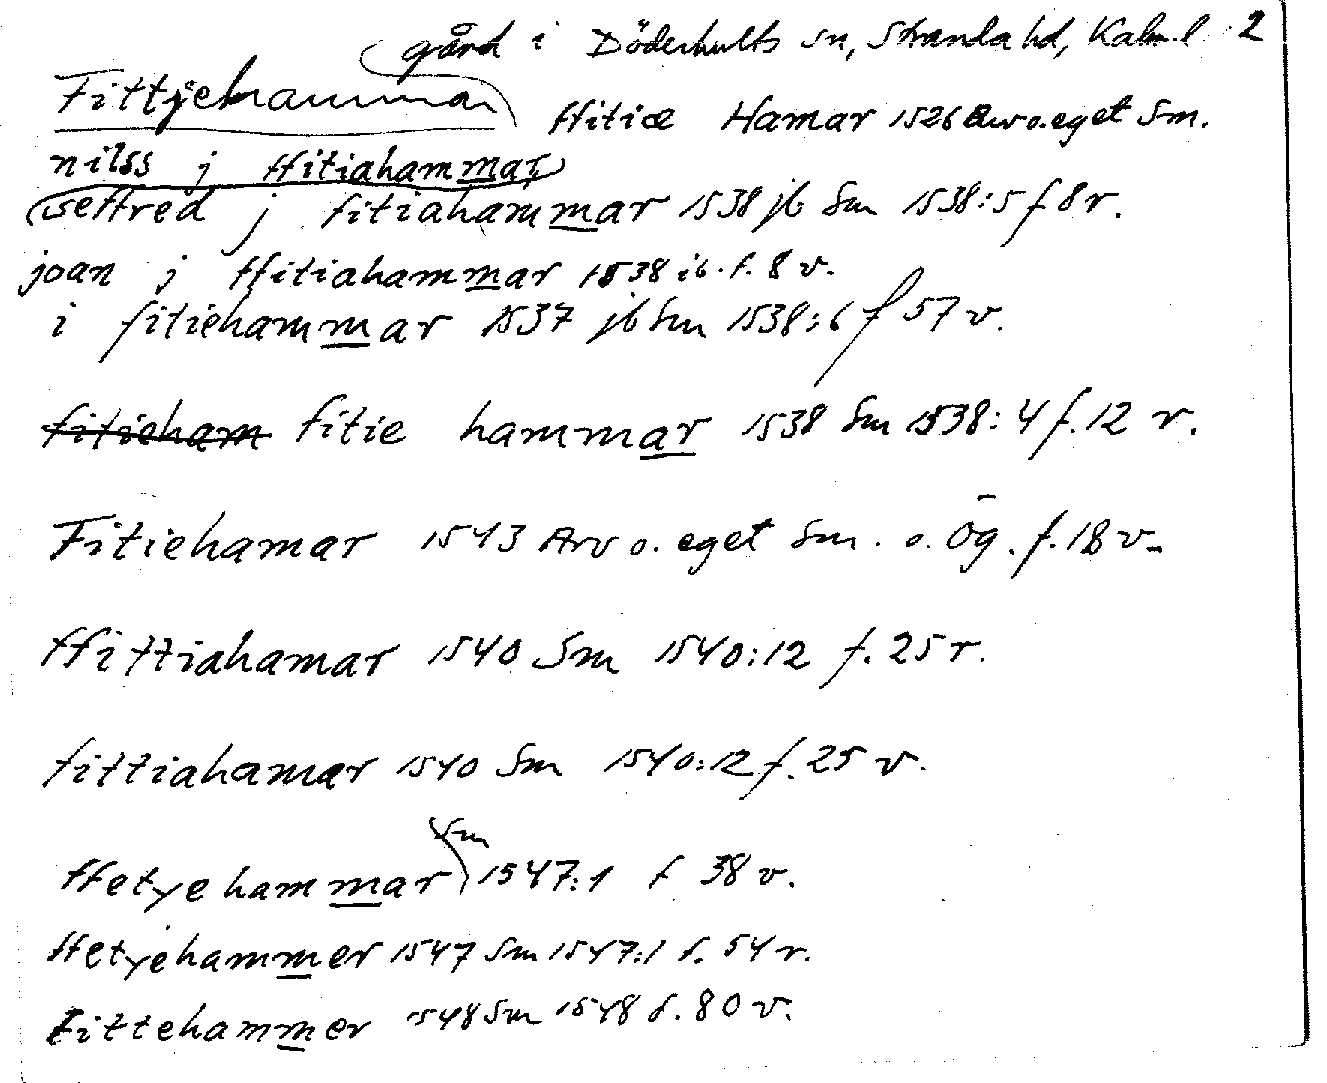 gård i Döderhults sn, Stranda hd, Kalm. l 2
Fittjehammar
ffitiæ Hamar 1526 Arv o. eget Sm.
nilss j ffitiahammar
seffred j fitiahammar 1538 jb Sm 1538:5 f 8 r.
joan j ffitiahammar 1538 ib. f. 8 v.
i fitiehammar 1537 jb Sm 1538:6 f 57 v.
fitieham fitie hammar 1538 Sm 1538:4 f. 12 r.
Fitiehamar 1543 Arv o. eget Sm. o. Ög. f. 18 v.
ffittiahamar 1540 Sm 1540:12 f. 25 r.
fittiahamar 1540 Sm 1540:12 f. 25 v.
ffetyehammar Sm 1547:1 f 38 v.
ffetyehammer 1547 Sm 1547:1 f. 54 r.
fittehammer 1548 Sm 1548 f. 80 v.